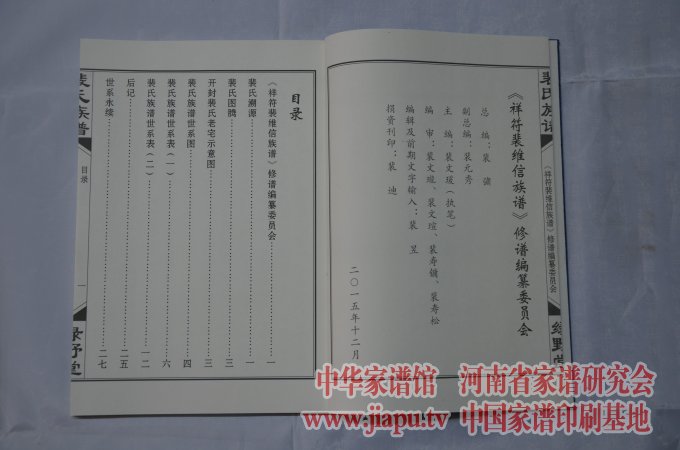 裴氏族谱
《祥符裴维信族谱》修谱编纂委员会
绿野堂
《祥符裴维信族谱》修谱编纂委员会
总编：裴
副总编：裴元秀
主编：裴文瑗（执笔）
编审：裴文瑞、裴寿镛、裴寿松
编辑及前期文字输入：裴昱
捐资刊印：裴迪
二〇一五年十二月
目录
《祥符裴维信族谱》修谱编纂委员会……一
裴氏溯源……一
裴氏图腾……三
开封裴氏老宅示意图……三
裴氏族谱世系图……四
裴氏族谱世系表（一）……六
裴氏族谱世系表（二）……一二
后记……二五
世系永续……二七
裴氏族谱
目录
一
绿野堂
中华家谱馆 河南省家谱研究会
www.jiapu.tv 中国家谱印刷基地